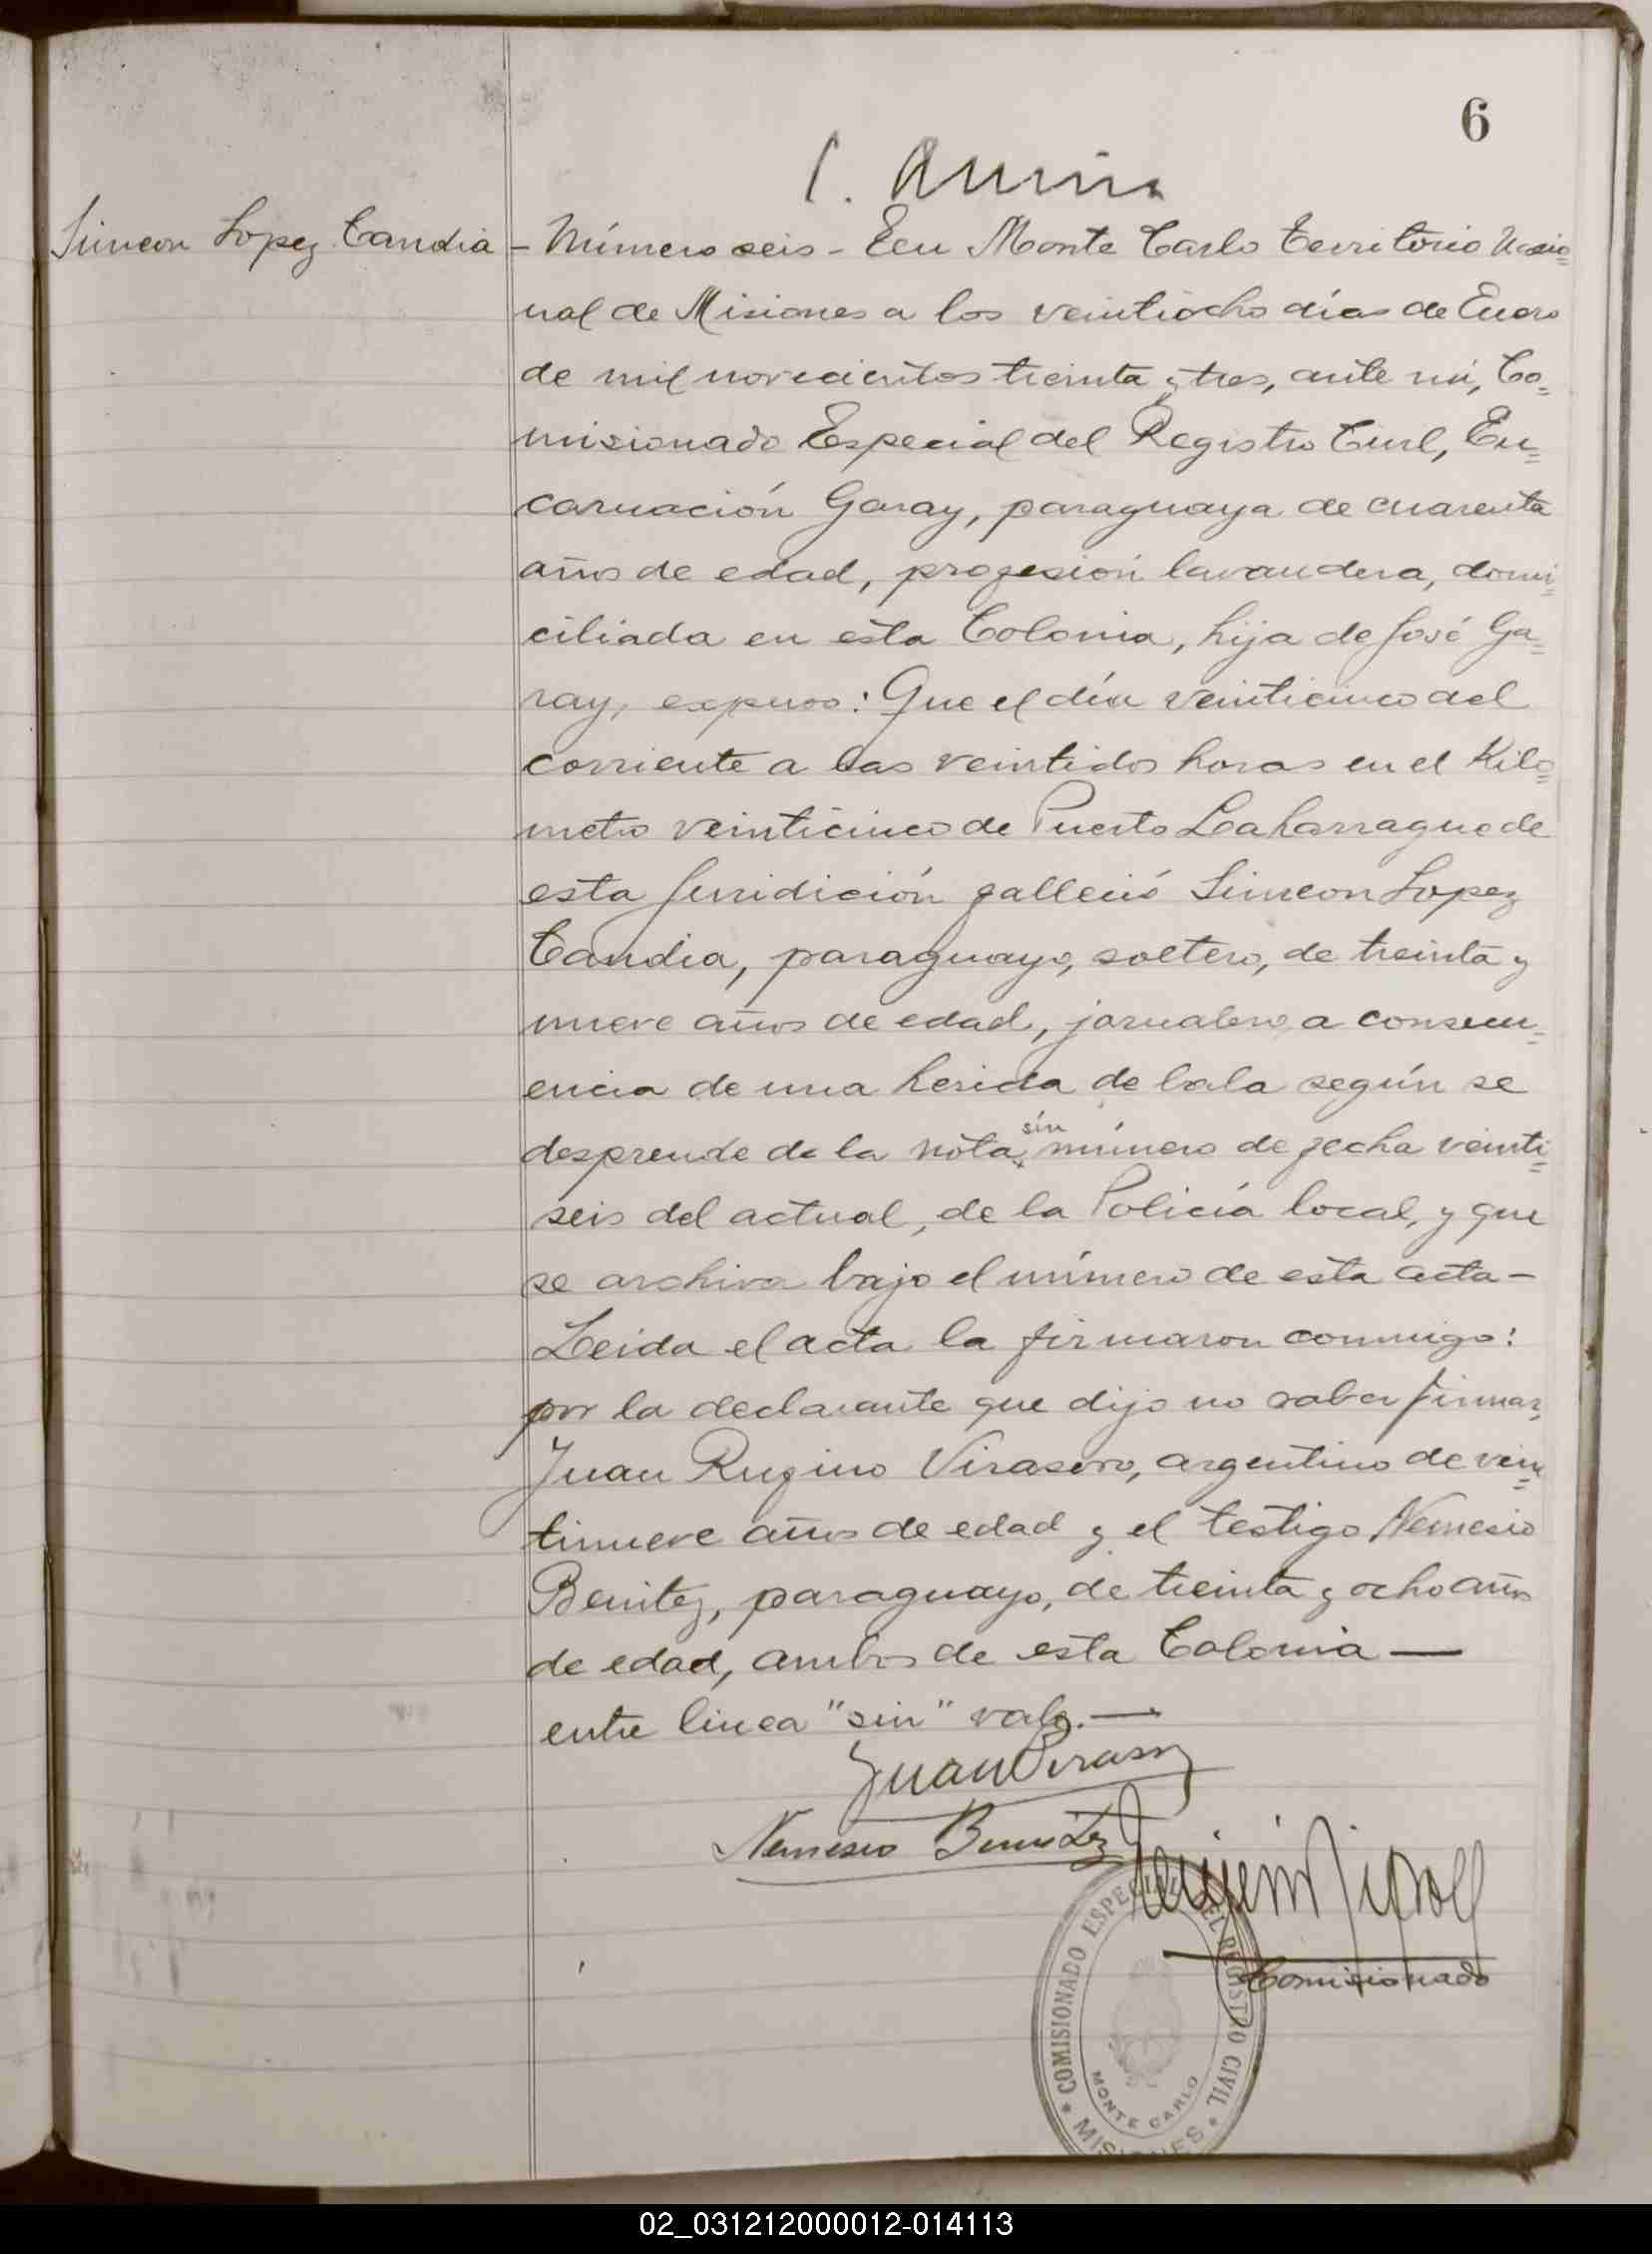 6
Simeon Lopez Candia
- Número seis - En Monte Carlo Territorio Nacio=
nal de Misiones a los veintiocho días de Enero
de mil novecientos treinta y tres, ante mí, Co=
misionado Especial del Registro Civil, En=
carnación Garay, paraguaya de cuarenta
años de edad, profesión lavandera, domi=
ciliada en esta Colonia, hija de José Ga=
ray, expuso: Que el día veinticinco del
corriente a las veintidos horas en el Kiló=
metro veinticinco de Puerto Laharrague de
esta Jurridición falleció Simeon Lopez
Candia, paraguayo, soltero, de treinta y
nueve años de edad, jornalero, a consecu=
encia de una herida de bala según se
desprende de la nota sin número de fecha veinti=
seis del actual, de la Policía local, y que
se archiva bajo el número de esta acta -
Leida el acta la firmaron conmigo:
por la declarante que dijo no saber firmar,
Juan Rufino Virasoro, argentino de vein=
tinueve años de edad y el testigo Nemesio
Benitez, paraguayo, de treinta y ocho años
de edad, ambos de esta Colonia —
entre linea "sin" vale. —
Nemesio Benitez
Comisionado
COMISIONADO ESPECIAL DEL REGISTRO CIVIL
MONTE CARLO
MISIONES
02_031212000012-014113